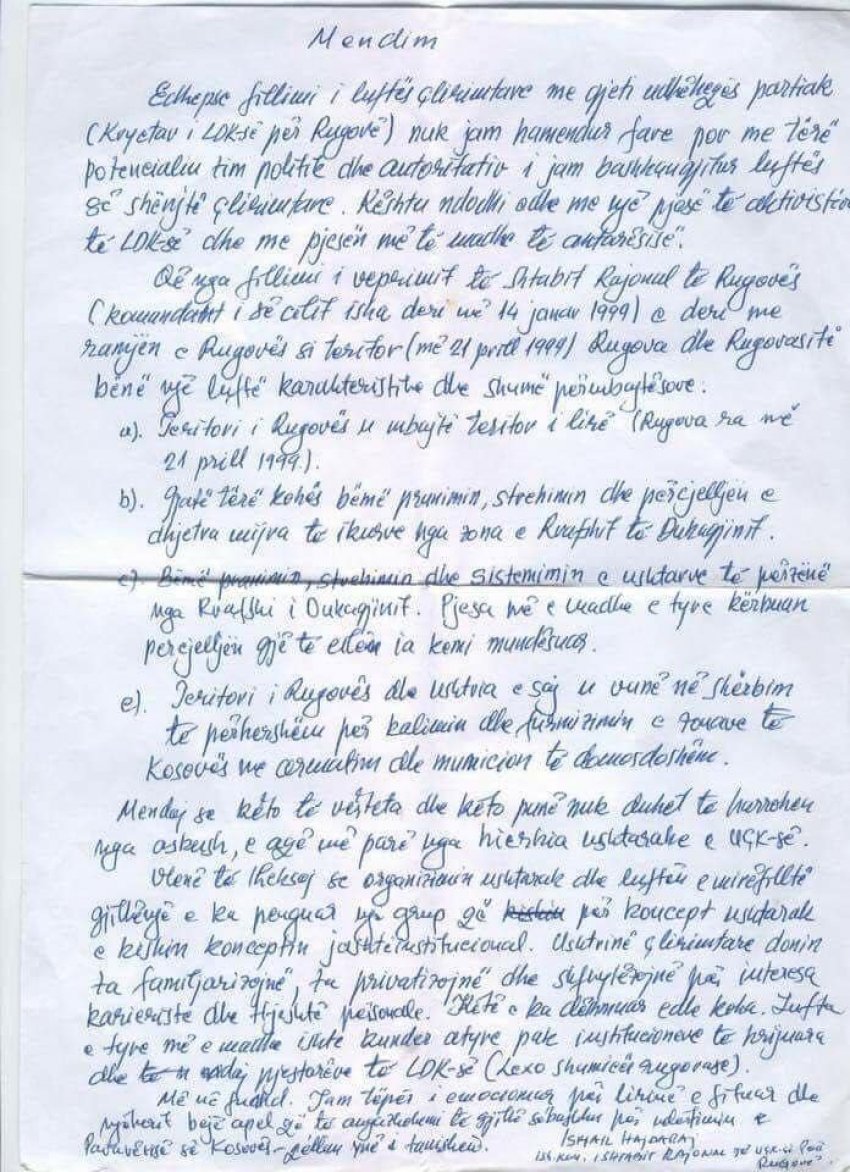 Mendim
Edhepse fillimi i luftës çlirimtare me gjeti udhëheqës partiak
(Kryetar i LDK-së për Rugovë) nuk jam hamendur fare por me tërë
potencialin tim politik dhe autoritativ i jam bashkangjitur luftës
së shenjtë çlirimtare. Kështu ndodhi edhe me një pjesë të aktivistëve
të LDK-së dhe me pjesën më të madhe të antarësisë.
Që nga fillimi i veprimit të Shtabit Rajonal të Rugovës
(komandant i së cilit isha deri më 14 janar 1999) e deri me
ramjen e Rugovës si teritor (më 21 prill 1999) Rugova dhe Rugovasitë
bënë një luftë karakteristike dhe shumë përmbajtësore:
a). Teritori i Rugovës u mbajtë teritor i lirë (Rugova ra më
21 prill 1999).
b). Gjatë tërë kohës bëmë pranimin, strehimin dhe përcjelljen e
dhjetra mijra të ikurve nga zona e Rrafshit të Dukagjinit.
c). Bëmë pranimin, strehimin dhe sistemimin e ushtarve të përzënë
nga Rrafshi i Dukagjinit. Pjesa më e madhe e tyre kërkuan
percjelljen gjë të cilën ia kemi mundësuar.
e). Teritori i Rugovës dhe ushtria e saj u vunë në shërbim
të përhershëm për kalimin dhe furnizimin e zonave të
Kosovës me armatim dhe municion të domosdoshëm.
Mendoj se këto të vërteta dhe këto punë nuk duhet të harrohen
nga askush, e aqë më parë nga hierkia ushtarake e UÇK-së.
Vlenë të theksoj se organizimin ushtarak dhe luftën e mirëfilltë
gjithënjë e ka penguar një grup që kishin për koncept ushtarak
e kishin konceptin jashtëinstitucional. Ushtrinë çlirimtare donin
ta familjarizojnë, ta privatizojnë dhe shfrytëzojnë për interesa
karieriste dhe thjeshtë personale. Këtë e ka dëshmuar edhe koha. Lufta
e tyre më e madhe ishte kunder atyre pak institucioneve të krijuara
dhe pjestarëve të LDK-së (Lexo shumicës rugovase).
Më në fund. Jam tëpër i emocionuar për lirinë e fituar dhe
njëherit bëjë apel që të angazhohemi të gjithë sëbashku për ndërtimin e
Pavarësisë së Kosovës - qëllim ynë i tanishëm.
ISMAIL HAJDARAJ
ish. kom. i SHTABIT RAJONAL TË UÇK-së Për
Rugovë